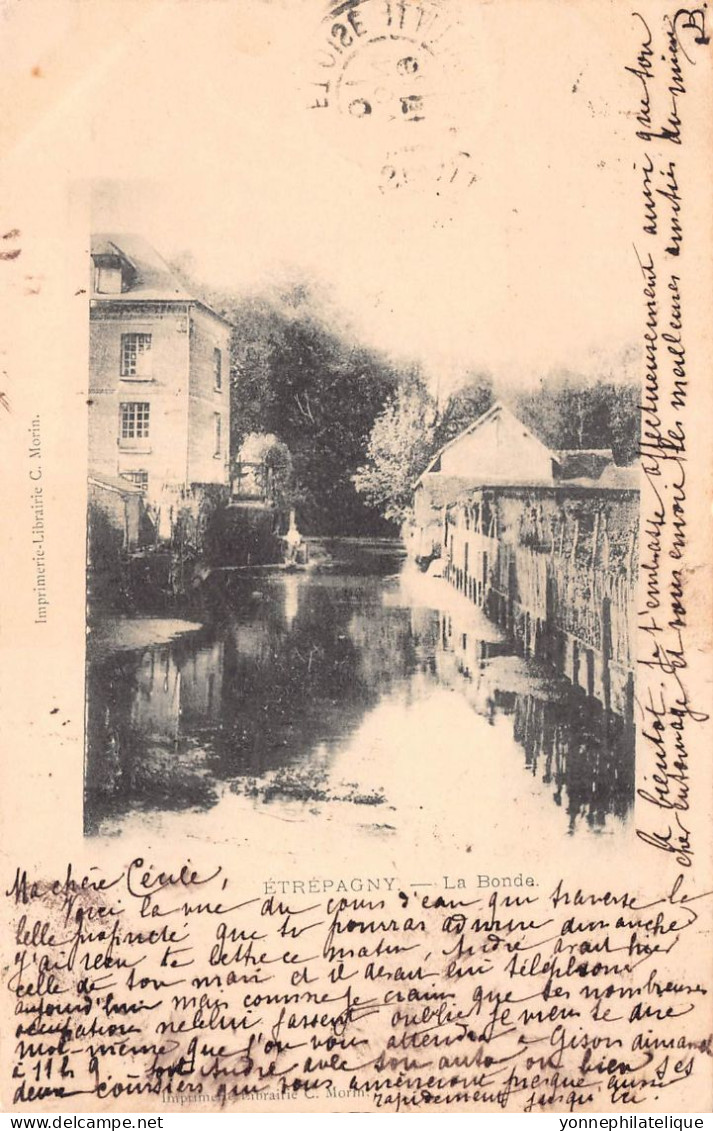 Ma chère Cécile,
ÉTRÉPAGNY — La Bonde.
Voici la vue du cours d'eau qui traverse la
belle propriété que tu pourras admirer dimanche
J'ai reçu ta lettre ce matin, André avait hier
celle de ton mari et il devait lui téléphoner
aujourd'hui mais comme je crains que ses nombreuses
occupations ne le lui fassent oublier je viens te dire
moi-même que l'on vous attendra à Gisors dimanche
à 11 h 9 soit André avec son auto ou bien ses
deux coursiers qui vous amèneront presque aussi
rapidement jusqu'ici.
à bientôt. Je t'embrasse affectueusement ainsi que ton
cher entourage et vous envoie les meilleures amitiés du mien
B.
Imprimerie-Librairie C. Morin.
Imprimerie-Librairie C. Morin.
yonnephilatelie@yahoo.com